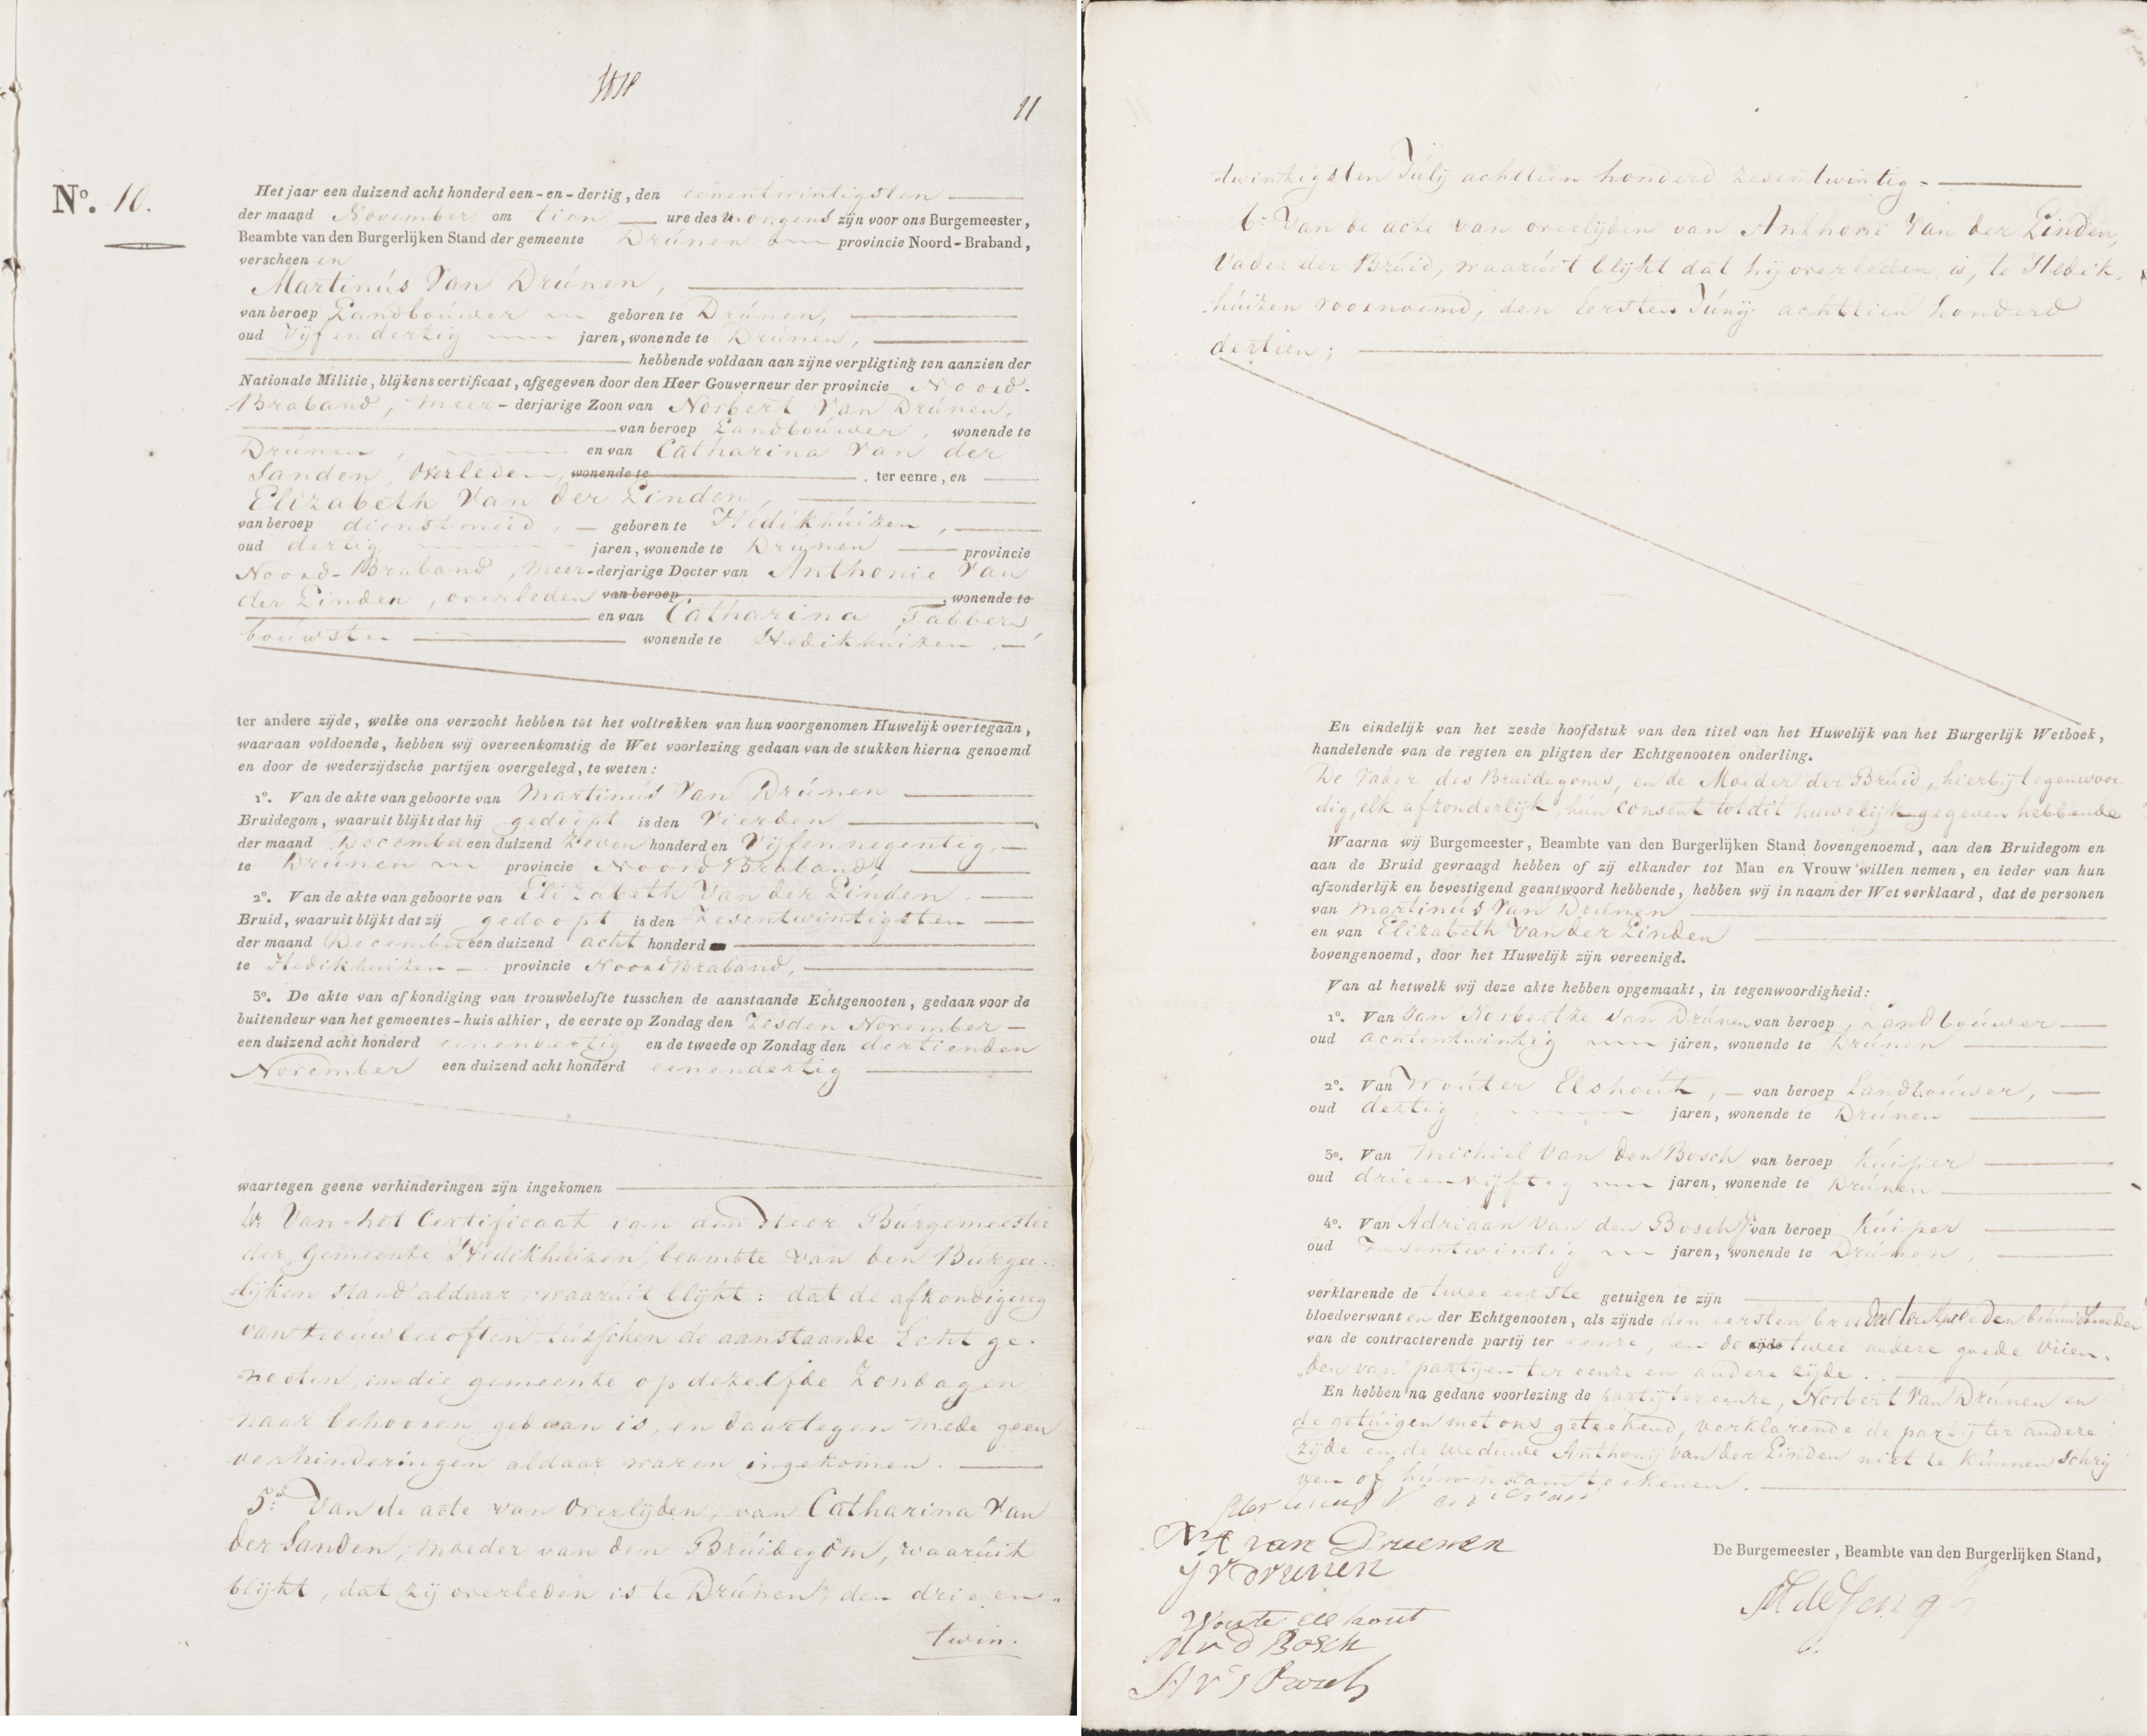 11
N.º 10.
Het jaar een duizend acht honderd een-en-dertig, den eenentwintigsten
der maand November om tien ure des morgens zijn voor ons Burgemeester,
Beambte van den Burgerlijken Stand der gemeente Drúnen provincie Noord-Braband,
verscheen en
Martinús Van Drúnen,
van beroep Landboúwer geboren te Drúnen,
oud Vijfendertig jaren, wonende te Drúnen,
hebbende voldaan aan zijne verpligting ten aanzien der
Nationale Militie, blijkens certificaat, afgegeven door den Heer Gouverneur der provincie Noord-
Braband, meer-derjarige Zoon van Norbert Van Drúnen,
van beroep Landboúwer, wonende te
Drúnen, en van Catharina Van der
Sanden, Overleden, wonende te ter eenre, en
Elizabeth Van der Linden,
van beroep dienstmeid, geboren te Hedikhúizen,
oud dertig jaren, wonende te Drúnen provincie
Noord-Braband, meer-derjarige Docter van Anthonie Van
der Linden, overleden van beroep, wonende te
en van Catharina Fabbers
boúwster wonende te Hedikhúizen.
ter andere zijde, welke ons verzocht hebben tot het voltrekken van hun voorgenomen Huwelijk overtegaan,
waaraan voldoende, hebben wij overeenkomstig de Wet voorlezing gedaan van de stukken hierna genoemd
en door de wederzijdsche partijen overgelegd, te weten:
1º. Van de akte van geboorte van Martinús Van Drúnen
Bruidegom, waaruit blijkt dat hij gedoopt is den Vierden
der maand December een duizend zeven honderd en Vijfennegentig,
te Drúnen provincie Noord Braband,
2º. Van de akte van geboorte van Elizabeth Van der Linden,
Bruid, waaruit blijkt dat zij gedoopt is den Zesentwintigsten
der maand December een duizend acht honderd
te Hedikhuizen provincie Noord Braband,
3º. De akte van afkondiging van trouwbelofte tusschen de aanstaande Echtgenooten, gedaan voor de
buitendeur van het gemeentes-huis alhier, de eerste op Zondag den Zesden November
een duizend acht honderd eenendertig en de tweede op Zondag den dertienden
November een duizend acht honderd eenendertig
waartegen geene verhinderingen zijn ingekomen
4º Van het Certificaat van den Heer Búrgemeester
der Gemeente Hedikhúizen, beambte van den Búrger-
lijken stand aldaar, waarúit blijkt: dat de afkondiging
van troúwbeloften, tússchen de aanstaande Echtge-
nooten, in die gemeente op dezelfde Zondagen
naar behooren gedaan is, en daartegen mede geen
verhinderingen aldaar waren ingekomen.
5º Van de acte van Overlijden, van Catharina Van
der Sanden, moeder van den Brúidegom, waarúit
blijkt, dat zij overleden is te Drúnen, den drieen-
twin.
twintigsten Júlij achttien honderd zesentwintig
6º Van de acte van overlijden van Anthoni Van der Linden,
Vader der Brúid, waarúit blijkt dat hij overleden is, te Hedik-
húizen voornoemd, den Eersten Júnij achttien honderd
dertien;
En eindelijk van het zesde hoofdstuk van den titel van het Huwelijk van het Burgerlijk Wetboek,
handelende van de regten en pligten der Echtgenooten onderling.
De Vader des Bruidegoms, en de Moeder der Brúid, hierbij tegenwoor
dig, elk afzonderlijk, hún consent tot dit huwelijk gegeven hebbende
Waarna wij Burgemeester, Beambte van den Burgerlijken Stand bovengenoemd, aan den Bruidegom en
aan de Bruid gevraagd hebben of zij elkander tot Man en Vrouw willen nemen, en ieder van hun
afzonderlijk en bevestigend geantwoord hebbende, hebben wij in naam der Wet verklaard, dat de personen
van Martinús Van Drúnen
en van Elizabeth Van der Linden
bovengenoemd, door het Huwelijk zijn vereenigd.
Van al hetwelk wij deze akte hebben opgemaakt, in tegenwoordigheid:
1º. Van Jan Norbertze van Drúnen van beroep Landboúwer
oud achtentwintig jaren, wonende te Drúnen
2º. Van Woúter Elshoút, van beroep Landboúwer,
oud dertig jaren, wonende te Drúnen
3º. Van Michiel Van den Bosch van beroep Kúiper
oud drieenvijftig jaren, wonende te Drúnen
4º. Van Adriaan Van den Bosch van beroep Kúiper
oud Zesentwintig jaren, wonende te Drúnen,
verklarende de twee eerste getuigen te zijn
bloedverwant en der Echtgenooten, als zijnde den eersten broeder den tweeden behuwdbroeder
van de contracterende partij ter eenre, en de zijde twee andere goede vrien-
den van partijen ter eenre en andere zijde.
En hebben na gedane voorlezing de partij ter eenre, Norbert Van Drúnen en
de getúigen met ons geteekend, verklarende de partij ter andere
zijde en de Wedúwe Anthonij van der Linden niet te kúnnen schrij
ven of hún naam teekenen.
N van Druenen
J v Drunen
Woute Elshout
M v d Bosch
A v d Bosch
De Burgemeester, Beambte van den Burgerlijken Stand,